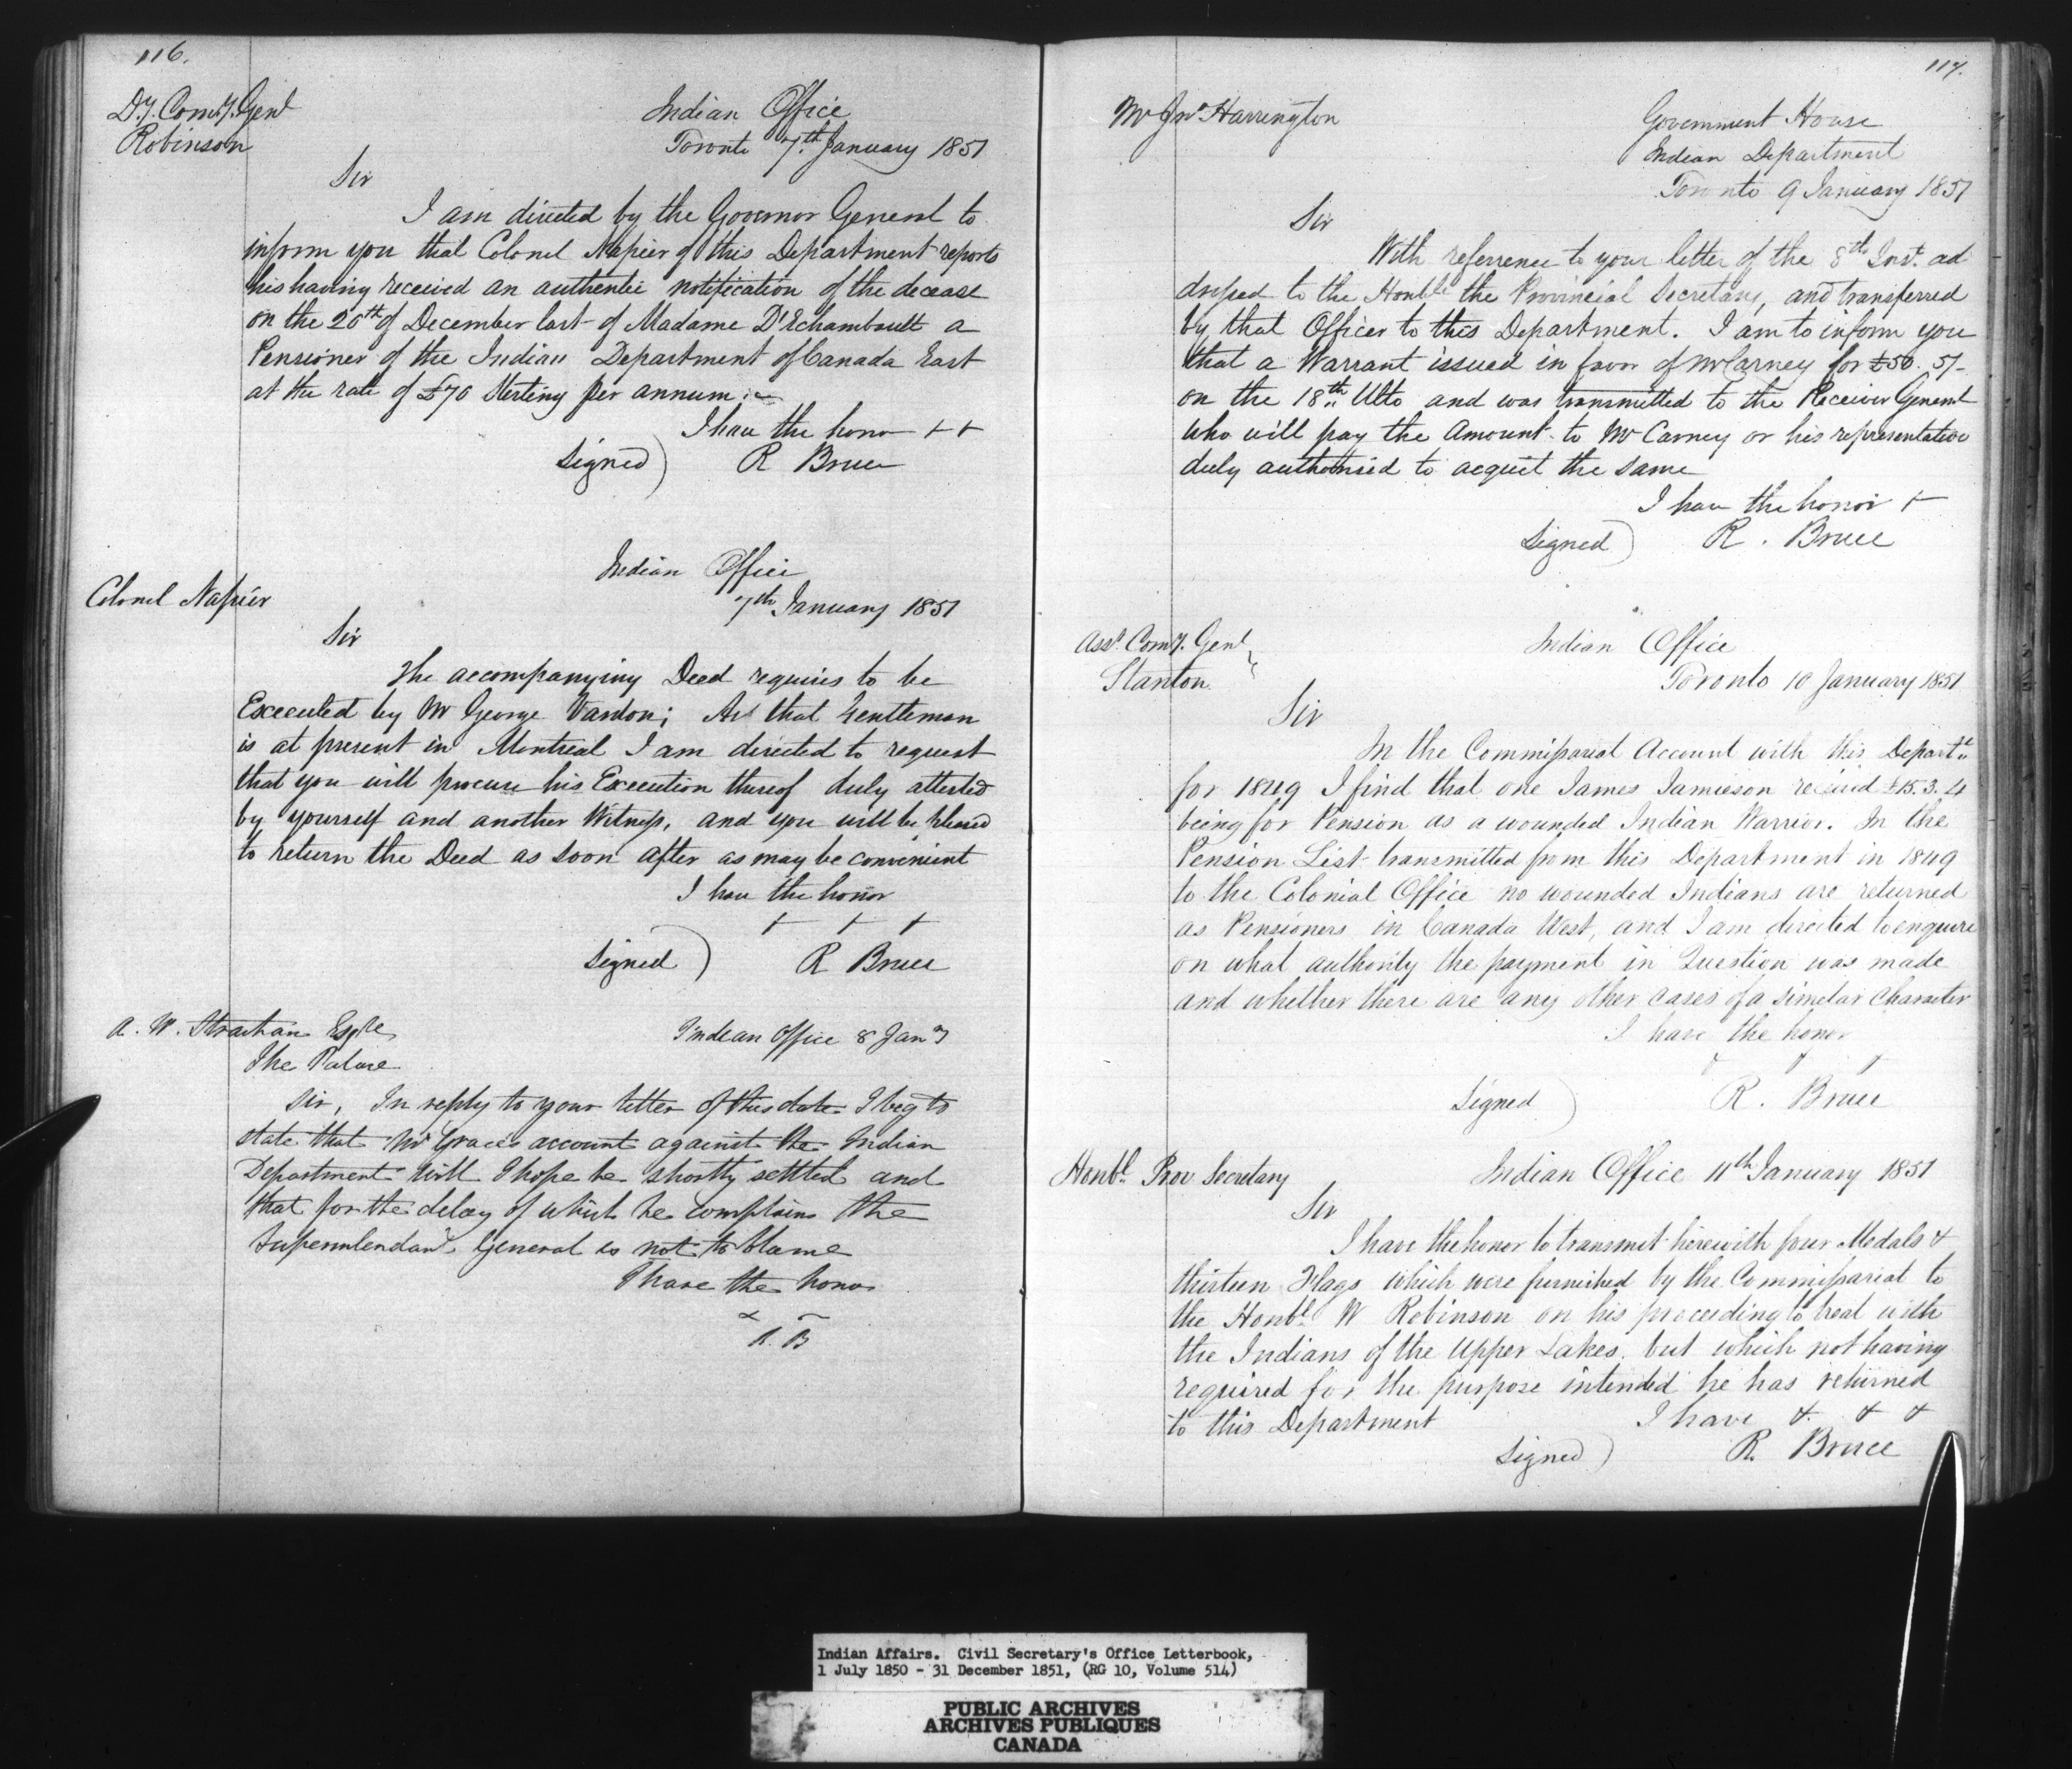 116.
Dy. Comy. Genl
Robinson
Indian Office
Toronto 7th January 1851
Sir
I am directed by the Governor General to
inform you that Colonel Napier of this Department reports
his having received an authentic notification of the decease
on the 20th of December last of Madame D'Echambault a
Pensioner of the Indian Department of Canada East
at the rate of £70 Sterling per annum.
I have the honor + +
Signed) R Bruce
Indian Office
7th January 1851
Colonel Napier
Sir
The accompanying Deed requires to be
Executed by Mr George Vardon; As that Gentleman
is at present in Montreal I am directed to request
that you will procure his Execution thereof duly attested
by yourself and another Witness, and you will be pleased
to return the Deed as soon after as may be convenient
I have the honor
+ + +
Signed) R Bruce
A. W. Strachan Esqre
The Palace
Indian Office 8 Jany
Sir, In reply to your letter of this date I beg to
state that Mr Grace's account against the Indian
Department will I hope be shortly settled and
that for the delay of which he complains the
Superintendant General is not to blame
I have the honor
R. B
117.
Mr Jno Harrington
Government House
Indian Department
Toronto 9 January 1851
Sir
With referrence to your letter of the 8th Inst. ad
dressed to the Honble the Provincial Secretary, and transferred
by that Officer to this Department. I am to inform you
that a Warrant issued in favor of Mr Carney for £50. 5/-
on the 18th Ulto and was transmitted to the Receiver General
who will pay the Amount to Mr Carney or his representative
duly authorised to acquit the same
I have the honor +
Signed) R. Bruce
Asst. Comy. Genl
Stanton
Indian Office
Toronto 10 January 1851
Sir
In the Commissariat Account with this Departt
for 1849 I find that one James Jamieson received £15.3.4
being for Pension as a wounded Indian Warrior. In the
Pension List transmitted from this Department in 1849
to the Colonial Office no wounded Indians are returned
as Pensioners in Canada West, and I am directed to enquire
on what authority the payment in Question was made
and whether there are any other cases of a similar character
I have the honor
+ + +
Signed) R. Bruce
Honbl. Prov Secretary
Indian Office 11th January 1851
Sir
I have the honor to transmit herewith four Medals &
thirteen Flags which were furnished by the Commissariat to
the Honbl. W Robinson on his proceeding to treat with
the Indians of the Upper Lakes. but which not having
required for the purpose intended he has returned
to this Department
I have & & &
Signed) R. Bruce
Indian Affairs. Civil Secretary's Office Letterbook,
1 July 1850 - 31 December 1851, (RG 10, Volume 514)
PUBLIC ARCHIVES
ARCHIVES PUBLIQUES
CANADA